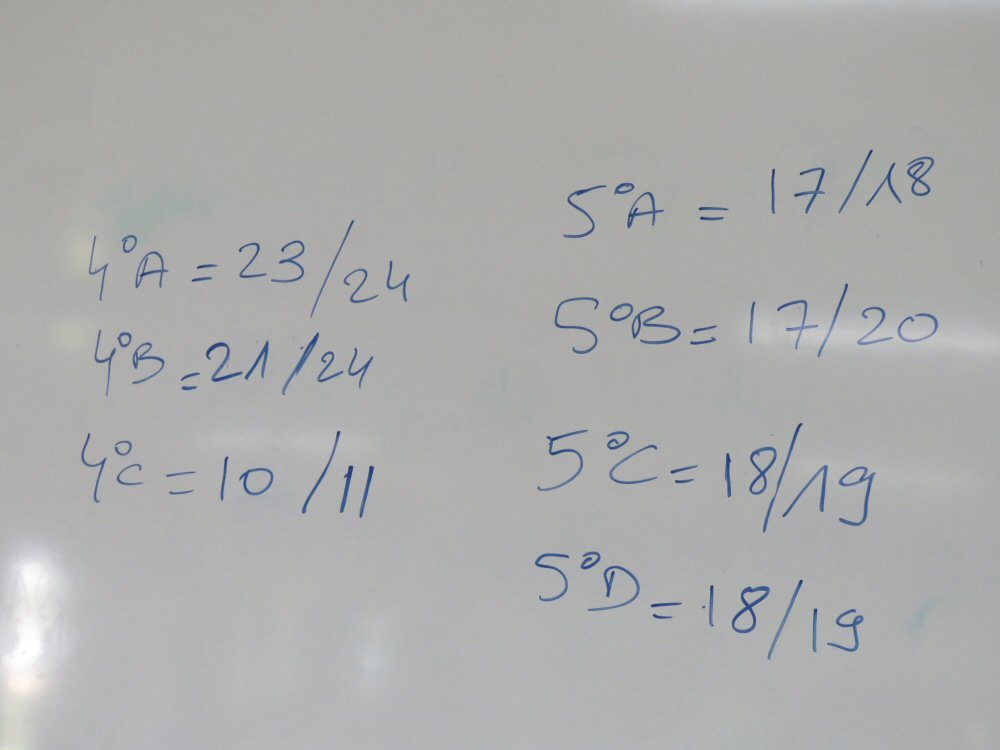 4°A = 23/24
4°B = 21/24
4°C = 10/11
5°A = 17/18
5°B = 17/20
5°C = 18/19
5°D = 18/19